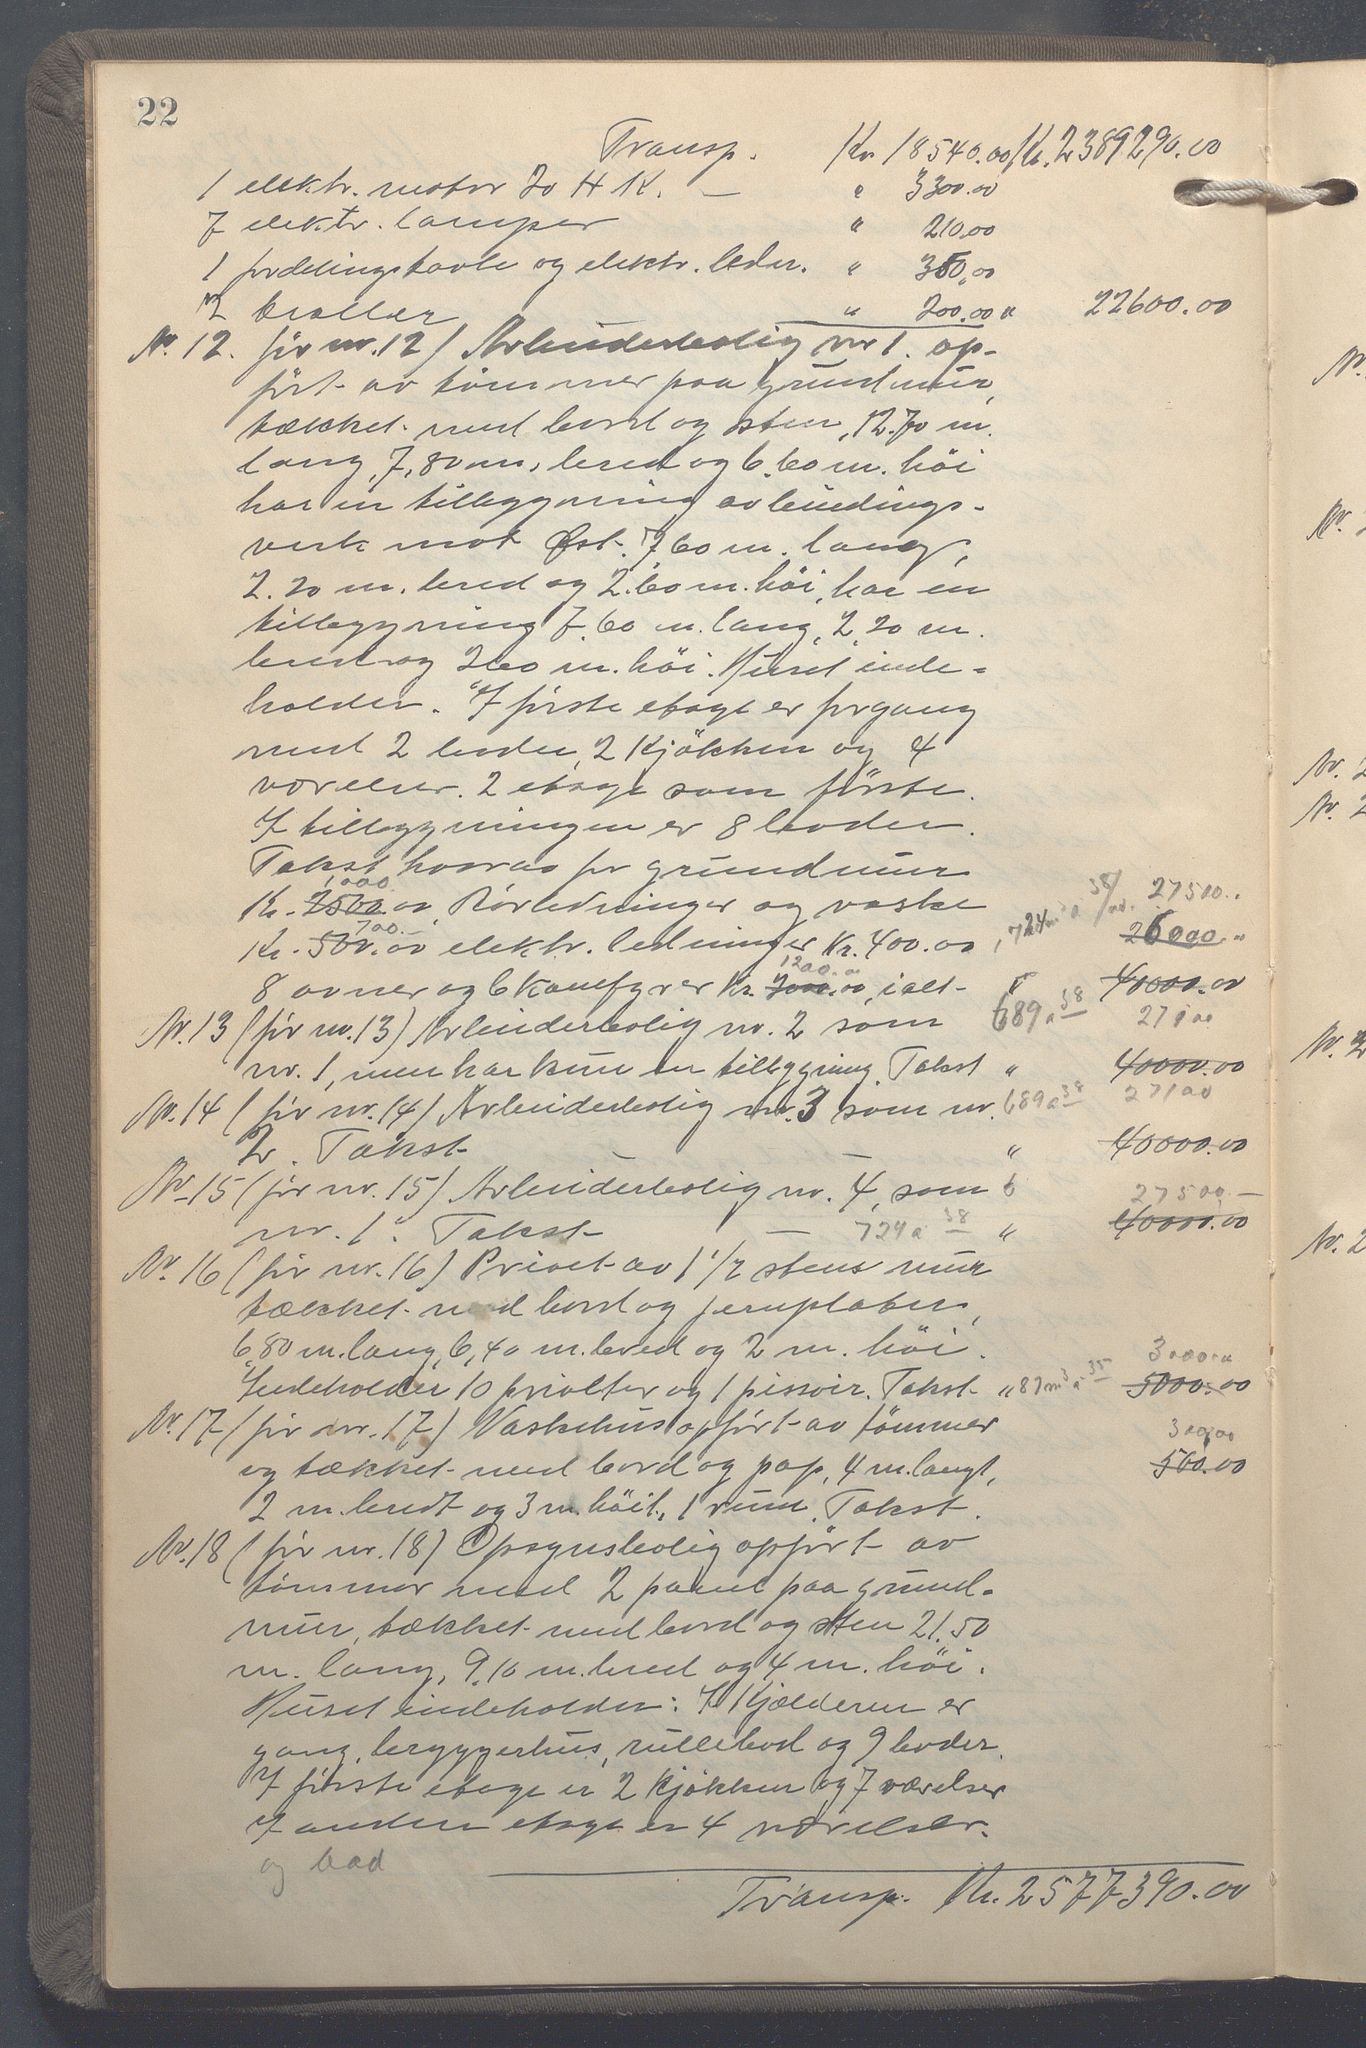 22
Transp. Kr. 18540.00 Kr. 2389290.00
1 elektr. motor 20 H K. — " 3300.00
7 elektr. lamper " 210.00
1 fordelingstavle og elektr. leder. " 350.00
2 traller " 200.00 " 22600.00
Nr. 12. (før nr. 12) Arbeiderbolig nr 1. op-
ført av tømmer paa grundmur,
tækket med bord og sten, 12.70 m.
lang, 7,80 m. bred og 6.60 m. høi
har en tilbygning av bindings-
verk mot Øst. 7.60 m. lang,
2.20 m. bred og 2.60 m. høi, har en
tilbygning 7.60 m. lang, 2.20 m.
bred og 2.60 m. høi. Huset inde-
holder. I første etage er forgang
med 2 boder, 2 kjøkken og 4
værelser. 2 etage som første.
I tilbygningen er 8 boder.
Takst hvorav for grundmur
1000.
Kr. 2500.00, Rørledninger og vaske 724 m³ a 38/ 27500..
700.
Kr. 500.00 elektr. ledninger Kr. 400.00 26000. "
1200.00
8 ovner og 6 komfyrer Kr. 2000.00, ialt " 40000.00
Nr. 13 (før nr. 13) Arbeiderbolig nr. 2 som 689 a 38 27100
nr. 1, men har kun en tilbygning. Takst " 40000.00
Nr. 14 (før nr. 14) Arbeiderbolig nr. 3 som nr. 689 a 38 27100
2. Takst " 40000.00
Nr. 15 (før nr. 15) Arbeiderbolig nr. 4, som 27500.—
nr. 1. Takst — 724 a 38 " 40000.00
Nr. 16 (før nr. 16) Privet av 1 1/2 stens mur
tækket med bord og jernplater,
6,80 m. lang, 6,40 m. bred og 2 m. høi. 3000.00
Indeholder 10 privetter og 1 pissoir. Takst " 87 m³ a 35 5000.00
Nr. 17 (før nr. 17) Vaskehus opført av tømmer 300.00
og tækket med bord og pap, 4 m. langt, 500.00
2 m. bredt og 3 m. høit, 1 rum. Takst.
Nr. 18 (før nr. 18) Opsynsbolig opført av
tømmer med 2 panel paa grund-
mur, tækket med bord og sten 21.50
m. lang, 9.10 m. bred og 4 m. høi.
Huset indeholder: I Kjælderen er
gang, bryggerhus, rullebod og 9 boder.
I første etage er 2 kjøkken og 7 værelser
I anden etage er 4 værelser.
og bad
Transp. Kr. 2577390.00
Nr.
Nr.
Nr. 2
Nr. 2
Nr. 2
Nr. 2